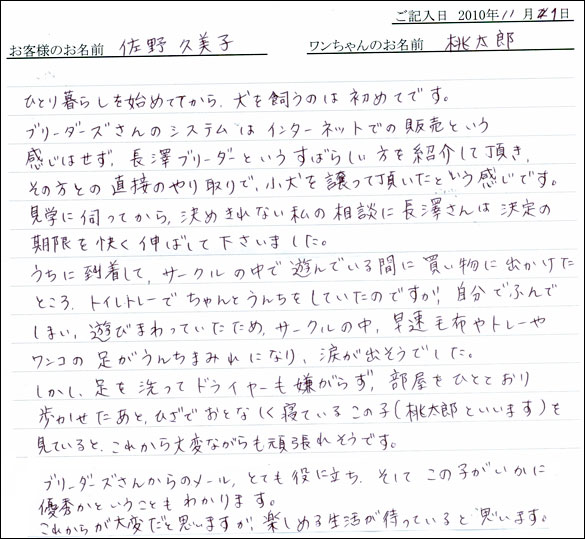 ご記入日 2010年11月21日
お客様のお名前 佐野久美子 ワンちゃんのお名前 桃太郎
ひとり暮らしを始めてから、犬を飼うのは初めてです。
ブリーダーズさんのシステムはインターネットでの販売という
感じはせず、長澤ブリーダーというすばらしい方を紹介して頂き、
その方との直接のやり取りで、小犬を譲って頂いたという感じです。
見学に伺ってから、決めきれない私の相談に長澤さんは決定の
期限を快く伸ばして下さいました。
うちに到着して、サークルの中で遊んでいる間に買い物に出かけた
ところ、トイレトレーでちゃんとうんちをしていたのですが、自分でふんで
しまい、遊びまわっていたため、サークルの中、早速毛布やトレーや
ワンコの足がうんちまみれになり、涙が出そうでした。
しかし、足を洗ってドライヤーも嫌がらず、部屋をひととおり
歩かせたあと、ひざでおとなしく寝ているこの子(桃太郎といいます)を
見ていると、これから大変ながらも頑張れそうです。
ブリーダーズさんからのメール、とても役に立ち、そしてこの子がいかに
優秀かということもわかります。
これからが大変だと思いますが、楽しめる生活が待っていると思います。